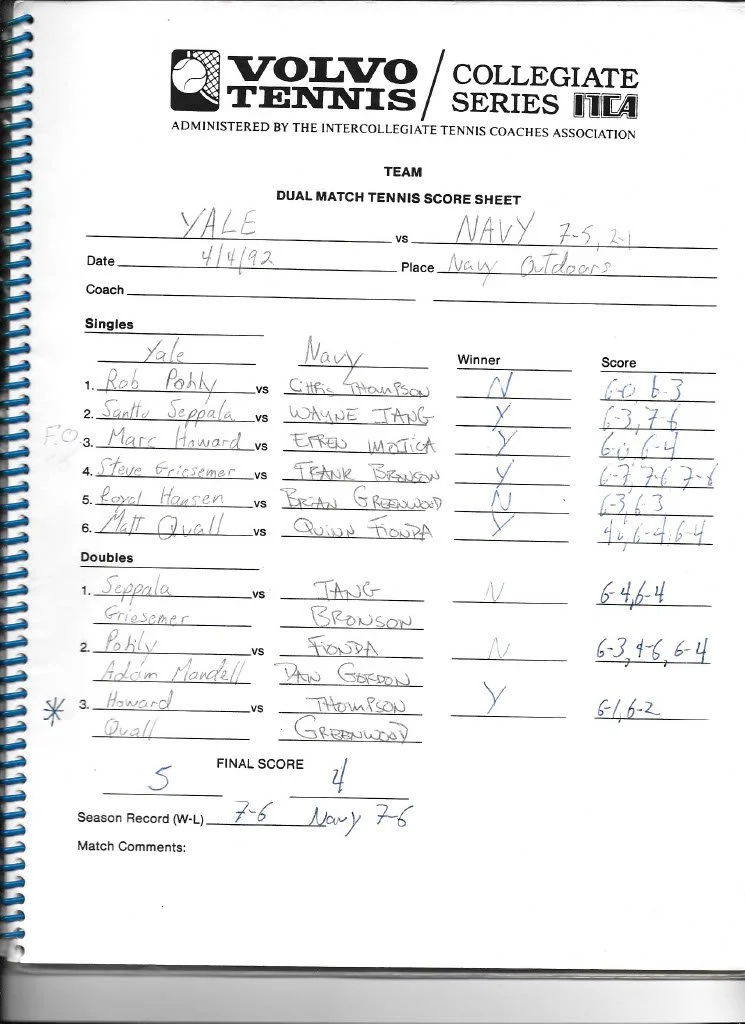 VOLVO TENNIS / COLLEGIATE SERIES ITCA
ADMINISTERED BY THE INTERCOLLEGIATE TENNIS COACHES ASSOCIATION
TEAM
DUAL MATCH TENNIS SCORE SHEET
YALE vs NAVY 7-5, 2-1
Date 4/4/92 Place Navy Outdoors
Coach
Singles
Yale Navy Winner Score
1. Rob Pohly vs CHRIS THOMPSON N 6-0 6-3
2. Santtu Seppala vs WAYNE TANG Y 6-3, 7-6
F.O. 3. Marc Howard vs EFREN MOJICA Y 6-0 6-4
4. Steve Griesemer vs FRANK BRONSON Y 6-7, 7-6 7-6
5. Royal Hansen vs BRIAN GREENWOOD N 6-3, 6-3
6. Matt Quall vs QUINN FIONDA Y 4-6, 6-4, 6-4
Doubles
1. Seppala vs TANG N 6-4, 6-4
Griesemer BRONSON
2. Pohly vs FIONDA N 6-3, 4-6, 6-4
Adam Mandell DAN GORDON
* 3. Howard vs THOMPSON Y 6-1, 6-2
Quall GREENWOOD
FINAL SCORE
5 4
Season Record (W-L) 7-6 Navy 7-6
Match Comments: